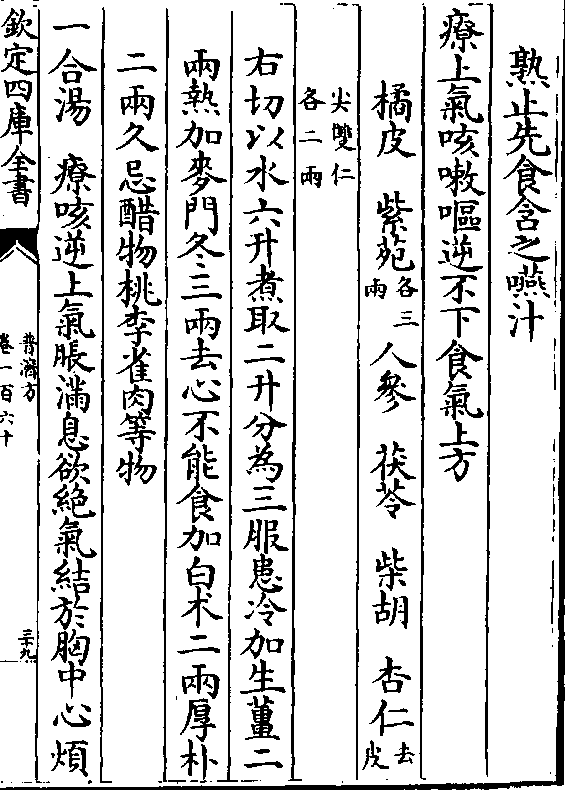 熟止先食含之嚥汁
療上氣咳嗽嘔逆不下食氣上方
橘皮　紫苑各三兩　人參　茯苓　柴胡　杏仁去皮
尖雙仁各二兩
右切以水六升煮取二升分為三服患冷加生薑二
兩熱加麥門冬三兩去心不能食加白朮二兩厚朴
二兩久忌醋物桃李雀肉等物
一合湯　療咳逆上氣脹滿息欲絶氣結於胸中心煩
欽定四庫全書
普濟方
卷一百六十
三十九